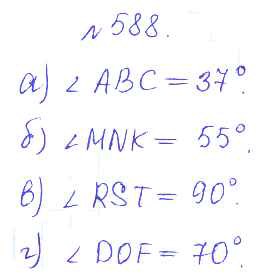 № 588.
а) ∠ ABC = 37°.
б) ∠ MNK = 55°.
в) ∠ RST = 90°.
г) ∠ DOF = 70°.